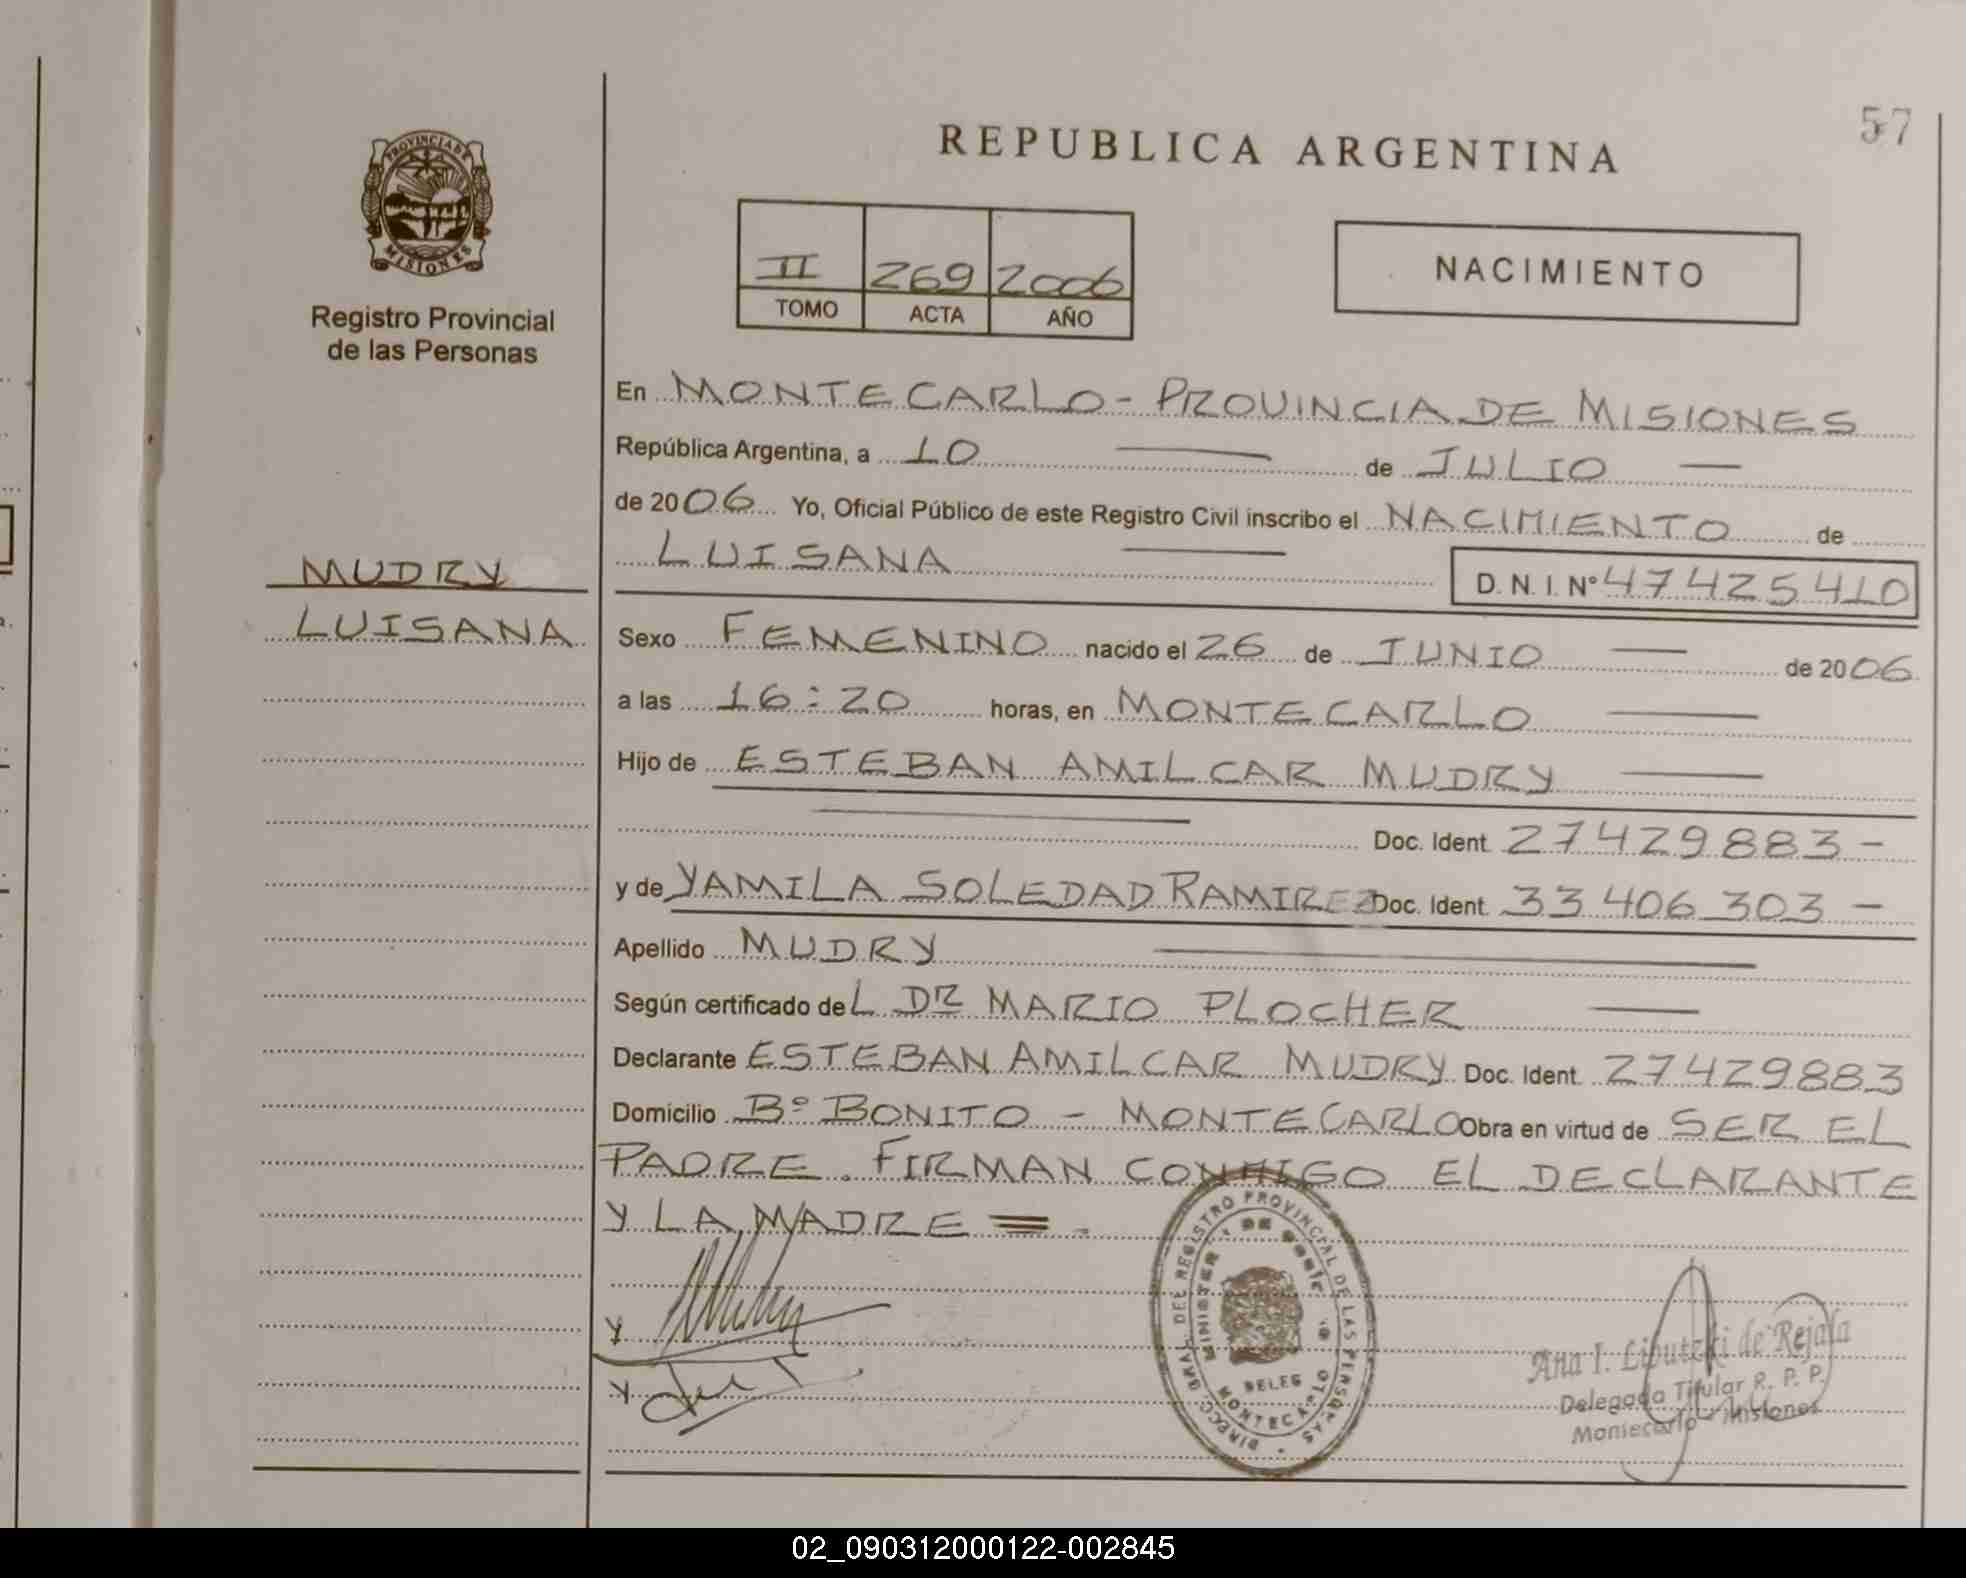 57
REPUBLICA ARGENTINA
PROVINCIA DE
MISIONES
Registro Provincial
de las Personas
II 269 2006
TOMO ACTA AÑO
NACIMIENTO
MUDRY
LUISANA
En MONTECARLO - PROVINCIA DE MISIONES
República Argentina, a 10 — de JULIO —
de 2006 Yo, Oficial Público de este Registro Civil inscribo el NACIMIENTO de
LUISANA — D. N. I. Nº 47425410
Sexo FEMENINO nacido el 26 de JUNIO — de 2006
a las 16:20 horas, en MONTECARLO —
Hijo de ESTEBAN AMILCAR MUDRY —
— Doc. Ident. 27429883 -
y de YAMILA SOLEDAD RAMIREZ Doc. Ident. 33406303 -
Apellido MUDRY —
Según certificado deL DR MARIO PLOCHER —
Declarante ESTEBAN AMILCAR MUDRY Doc. Ident. 27429883
Domicilio Bº BONITO - MONTECARLO Obra en virtud de SER EL
PADRE. FIRMAN CONMIGO EL DECLARANTE
Y LA MADRE = . -
DIRECC. GRAL. DEL REGISTRO PROVINCIAL DE LAS PERSONAS
DELEG
MONTECARLO
Ana I. de Rejala
Delegada Titular R. P. P.
Montecarlo - Misiones
02_090312000122-002845